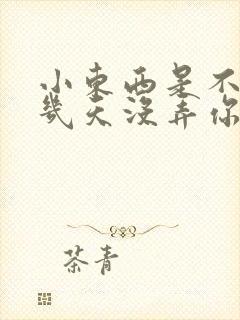 小东西是不
几天没弄你
茶青